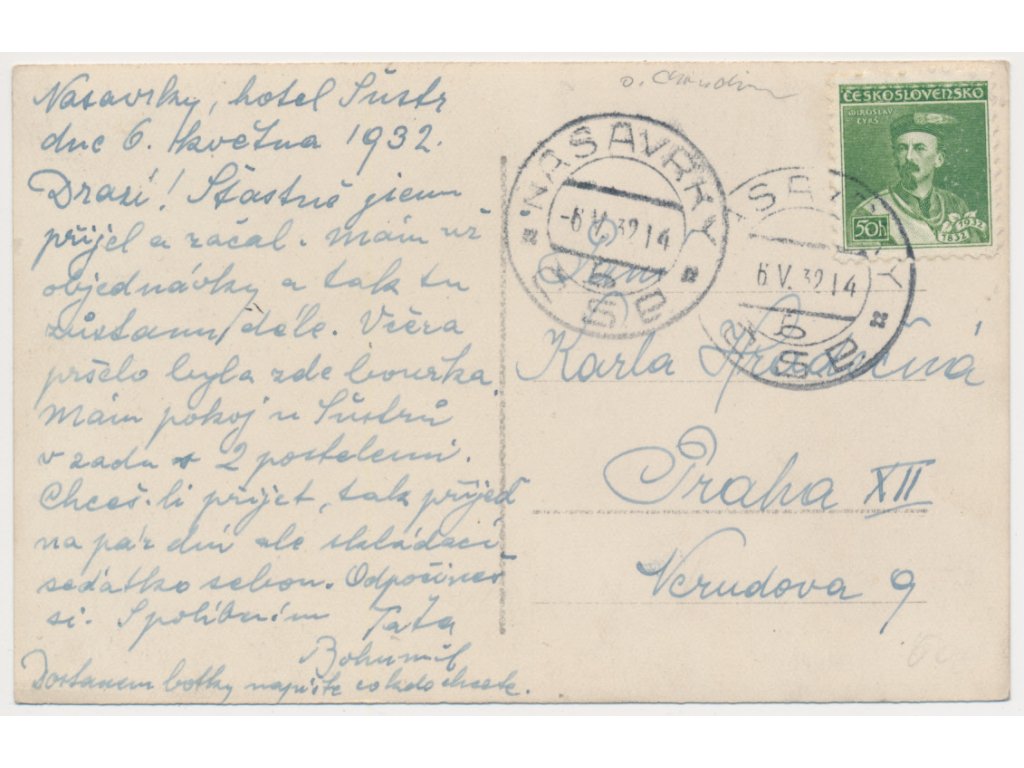 Nasavrky, hotel Šustr
dne 6. května 1932.
Drazí! Šťastně jsem
přijel a začal. Mám už
objednávky a tak tu
zůstanu déle. Včera
pršelo byla zde bouřka
Mám pokoj u Šustrů
v zadu s 2 postelemi.
Chceš-li přijet, tak přijeď
na pár dní ale skládací
seďátko sebou. Odpočineš
si. S políbením Táta
Bohumil
Dostanem botky napište co kdo chcete.
o. Chrudim
ČESKOSLOVENSKO
MIROSLAV
TYRŠ
50h
1832 1932
NASAVRKY
-6.V.32 14
6.V.32 14
Karla
Praha XII
Nerudova 9